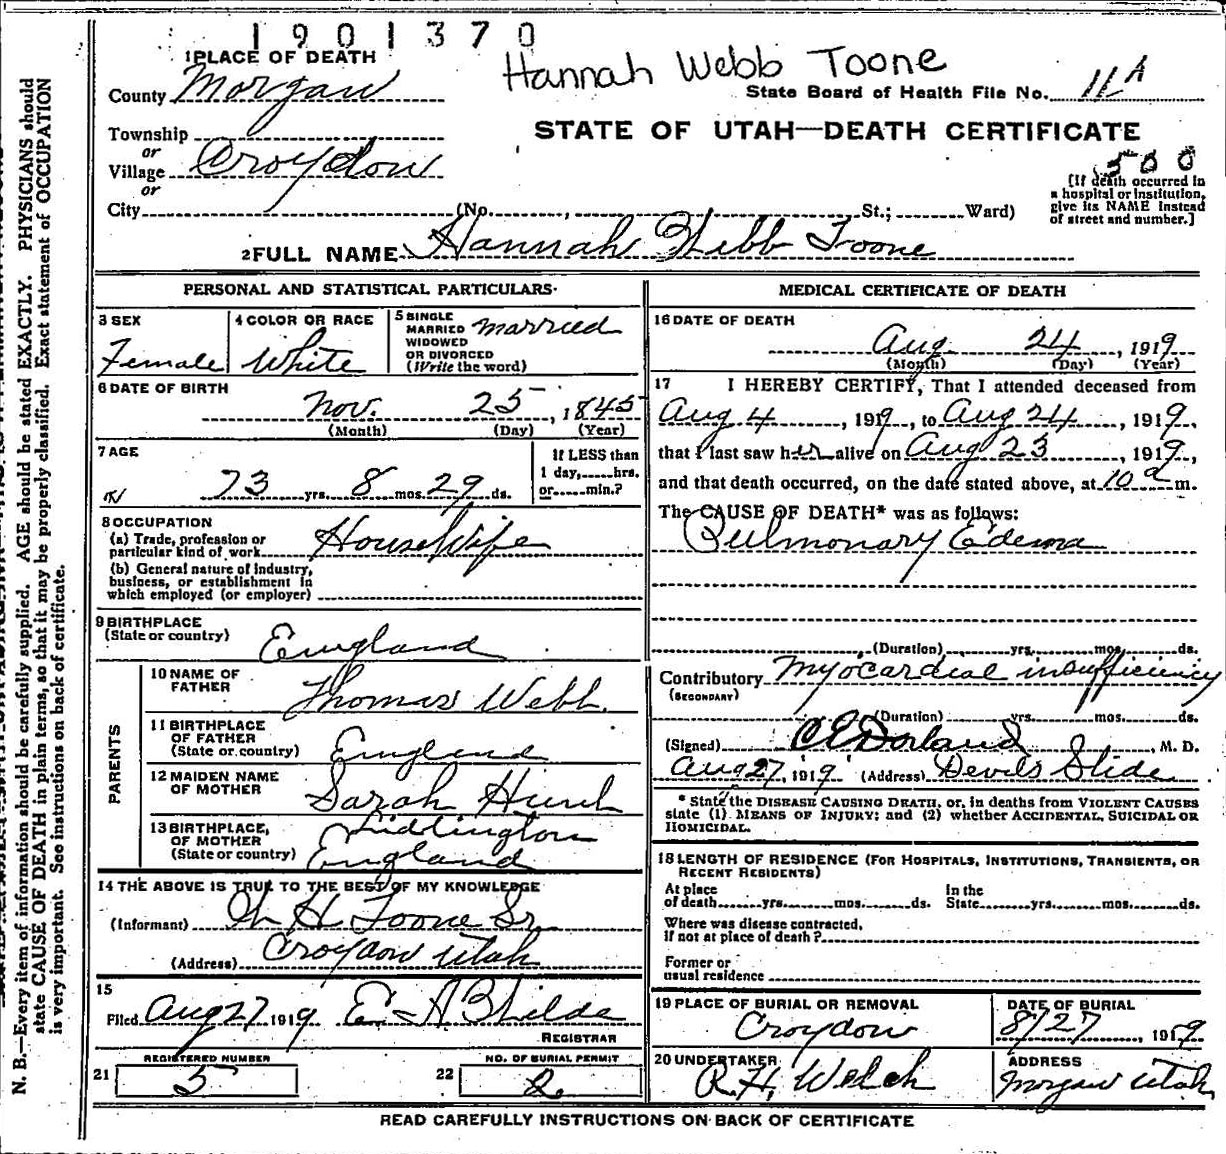 1901370
Hannah Webb Toone
1 PLACE OF DEATH
County Morgan
State Board of Health File No. 11A
Township
or
Village Croydon
or
City (No. , St.; Ward)
STATE OF UTAH—DEATH CERTIFICATE
500
[If death occurred in
a hospital or institution,
give its NAME instead
of street and number.]
2 FULL NAME Hannah Webb Toone
PERSONAL AND STATISTICAL PARTICULARS
3 SEX
Female
4 COLOR OR RACE
White
5 SINGLE
MARRIED
WIDOWED
OR DIVORCED
(Write the word)
married
6 DATE OF BIRTH
Nov. 25, 1845
(Month) (Day) (Year)
7 AGE
73 yrs. 8 mos. 29 ds.
If LESS than
1 day, hrs.
or min.?
8 OCCUPATION
(a) Trade, profession or
particular kind of work HouseWife
(b) General nature of industry,
business, or establishment in
which employed (or employer)
9 BIRTHPLACE
(State or country) England
PARENTS
10 NAME OF
FATHER Thomas Webb.
11 BIRTHPLACE
OF FATHER
(State or country) England
12 MAIDEN NAME
OF MOTHER Sarah
13 BIRTHPLACE,
OF MOTHER
(State or country)
Liddington
England
14 THE ABOVE IS TRUE TO THE BEST OF MY KNOWLEDGE
(Informant) W H Toone Sr
(Address) Croydon Utah
15
Filed Aug 27 1919
REGISTRAR
REGISTERED NUMBER
21 5
NO. OF BURIAL PERMIT
22 2
MEDICAL CERTIFICATE OF DEATH
16 DATE OF DEATH
Aug. 24, 1919
(Month) (Day) (Year)
17 I HEREBY CERTIFY, That I attended deceased from
Aug 4, 1919, to Aug 24, 1919,
that I last saw her alive on Aug 23, 1919,
and that death occurred, on the date stated above, at 10 a m.
The CAUSE OF DEATH* was as follows:
Pulmonary Edema
(Duration) yrs. mos. ds.
Contributory Myocardial insufficiency
(SECONDARY)
(Duration) yrs. mos. ds.
(Signed) C E Dorland, M. D.
Aug 27, 1919 (Address) Devils Slide
* State the DISEASE CAUSING DEATH, or, in deaths from VIOLENT CAUSES
state (1) MEANS OF INJURY; and (2) whether ACCIDENTAL, SUICIDAL OR
HOMICIDAL.
18 LENGTH OF RESIDENCE (FOR HOSPITALS, INSTITUTIONS, TRANSIENTS, OR
RECENT RESIDENTS)
At place
of death yrs. mos. ds.
In the
State yrs. mos. ds.
Where was disease contracted,
If not at place of death ?
Former or
usual residence
19 PLACE OF BURIAL OR REMOVAL
Croydon
DATE OF BURIAL
8/27, 1919
20 UNDERTAKER
R. H. Welch
ADDRESS
Morgan Utah
READ CAREFULLY INSTRUCTIONS ON BACK OF CERTIFICATE
N. B.—Every item of information should be carefully supplied. AGE should be stated EXACTLY. PHYSICIANS should
state CAUSE OF DEATH in plain terms, so that it may be properly classified. Exact statement of OCCUPATION
is very important. See instructions on back of certificate.